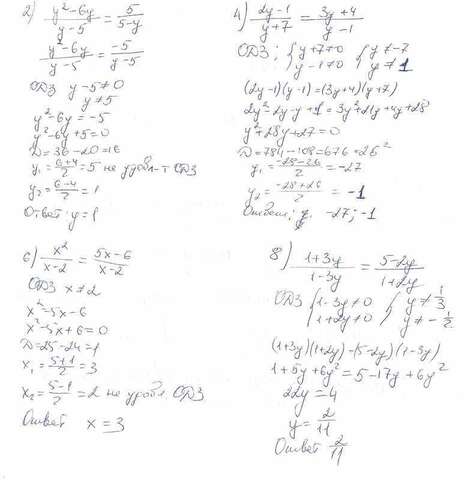 2) \frac{y²-6y}{y-5} = \frac{5}{5-y}
\frac{y²-6y}{y-5} = \frac{-5}{y-5}
ОДЗ y-5≠0
y≠5
y²-6y=-5
y²-6y+5=0
D=36-20=16
y₁=\frac{6+4}{2}=5 не удовл-т ОДЗ
y₂=\frac{6-4}{2}=1
Ответ: y=1
4) \frac{2y-1}{y+7} = \frac{3y+4}{y-1}
ОДЗ; { y+7≠0 { y≠-7
y-1≠0 y≠1
(2y-1)(y-1)=(3y+4)(y+7)
2y²-2y-y+1=3y²+21y+4y+28
y²+28y+27=0
D=784-108=676=26²
y₁=\frac{-28-26}{2}=-27
y₂=\frac{-28+26}{2}=-1
Ответ: -27; -1
6) \frac{x²}{x-2} = \frac{5x-6}{x-2}
ОДЗ x≠2
x²=5x-6
x²-5x+6=0
D=25-24=1
x₁=\frac{5+1}{2}=3
x₂=\frac{5-1}{2}=2 не удовл ОДЗ
Ответ x=3
8) \frac{1+3y}{1-3y} = \frac{5-2y}{1+2y}
ОДЗ { 1-3y≠0 { y≠\frac{1}{3}
1+2y≠0 y≠-\frac{1}{2}
(1+3y)(1+2y)=(5-2y)(1-3y)
1+5y+6y²=5-17y+6y²
22y=4
y=\frac{2}{11}
Ответ \frac{2}{11}